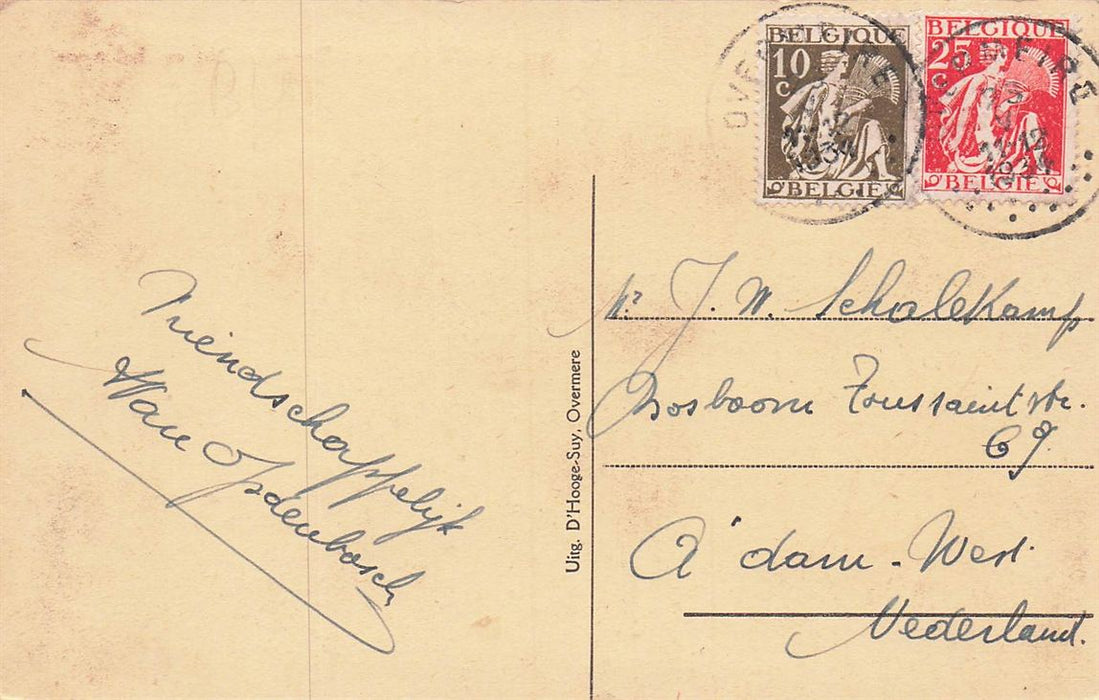 Vriendschappelijk
Van Opdenbosch
Uitg. D'Hooge-Suy, Overmere
BELGIQUE
10
C
BELGIE
BELGIQUE
25
C
BELGIE
OVERMERE
11-12
1934
Mr J. W. Schalekamp
Bosboom Toussaint str.
69
A'dam - West
Nederland.